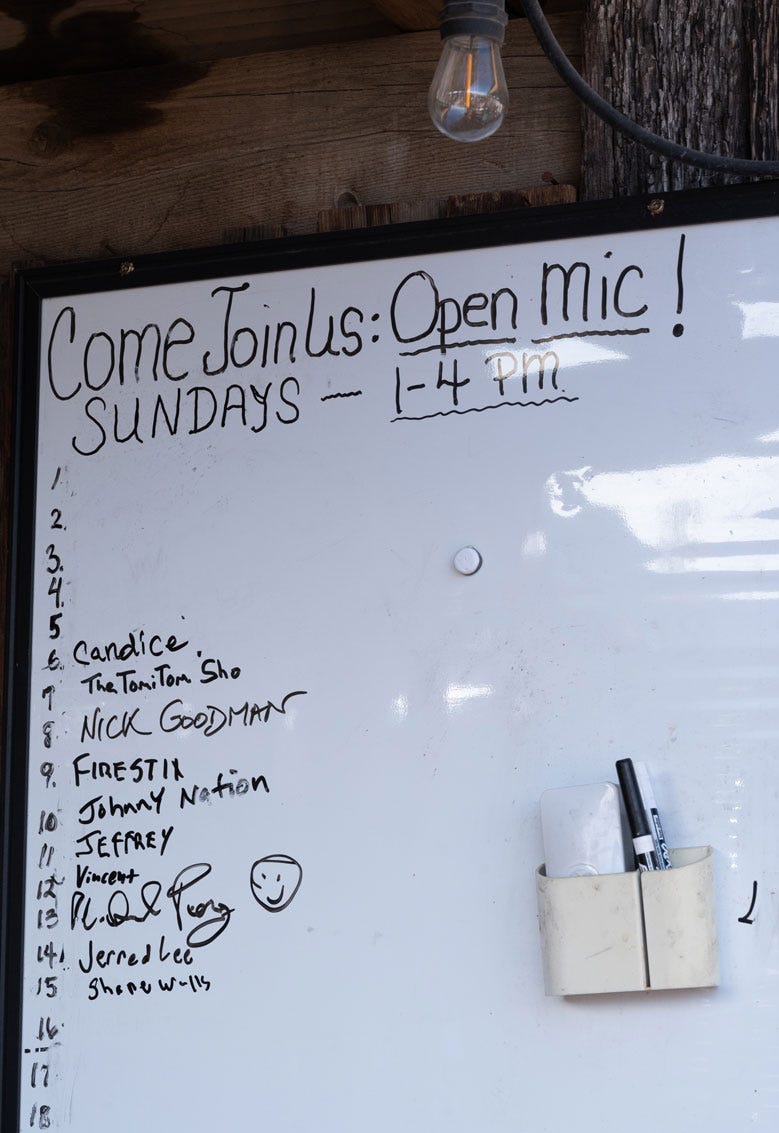 Come Join Us: Open Mic!
SUNDAYS — 1-4 PM
1.
2.
3.
4.
5
6. Candice.
7 The TomiTom Sho
8. NICK GOODMAN
9. FIRESTIX
10 Johnny Nation
11 JEFFREY
12 Vincent
13
14. Jerred Lee
15 Shane Walls
16.
17
18